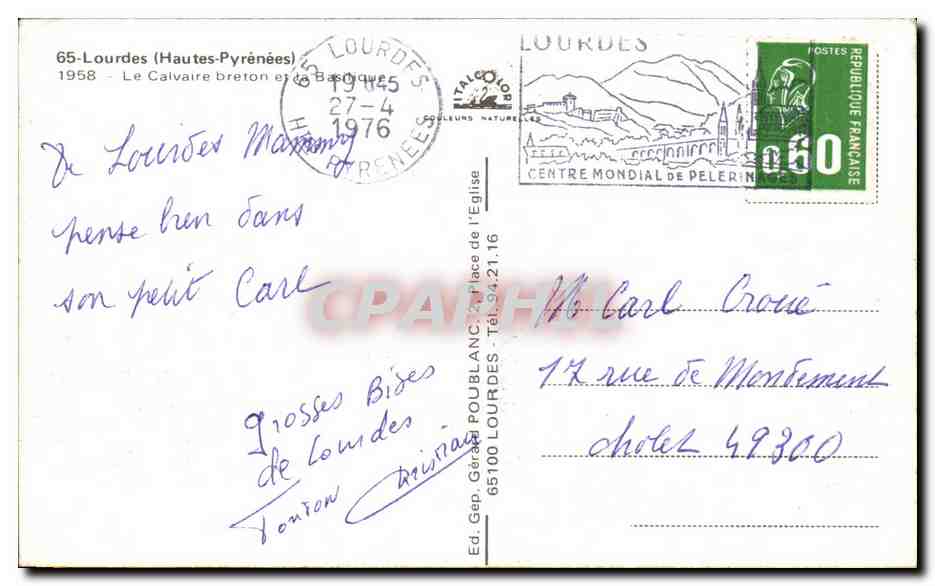 65-Lourdes (Hautes-Pyrénées)
1958 - Le Calvaire breton et la Basilique
65 LOURDES
19H45
27-4
1976
HTES PYRENEES
ITALCOLOR
COULEURS NATURELLES
LOURDES
CENTRE MONDIAL DE PELERINAGES
POSTES
REPUBLIQUE FRANÇAISE
0.60
De Lourdes Mammy
pense bien dans
son petit Carl
grosses Bises
de Lourdes
Tonton Christian
Ed. Gep. Gérard POUBLANC. 2, Place de l'Eglise
65100 LOURDES - Tél. 94.21.16
M Carl Croué
17 rue de Mondement
cholet 49300
CPAPHIL